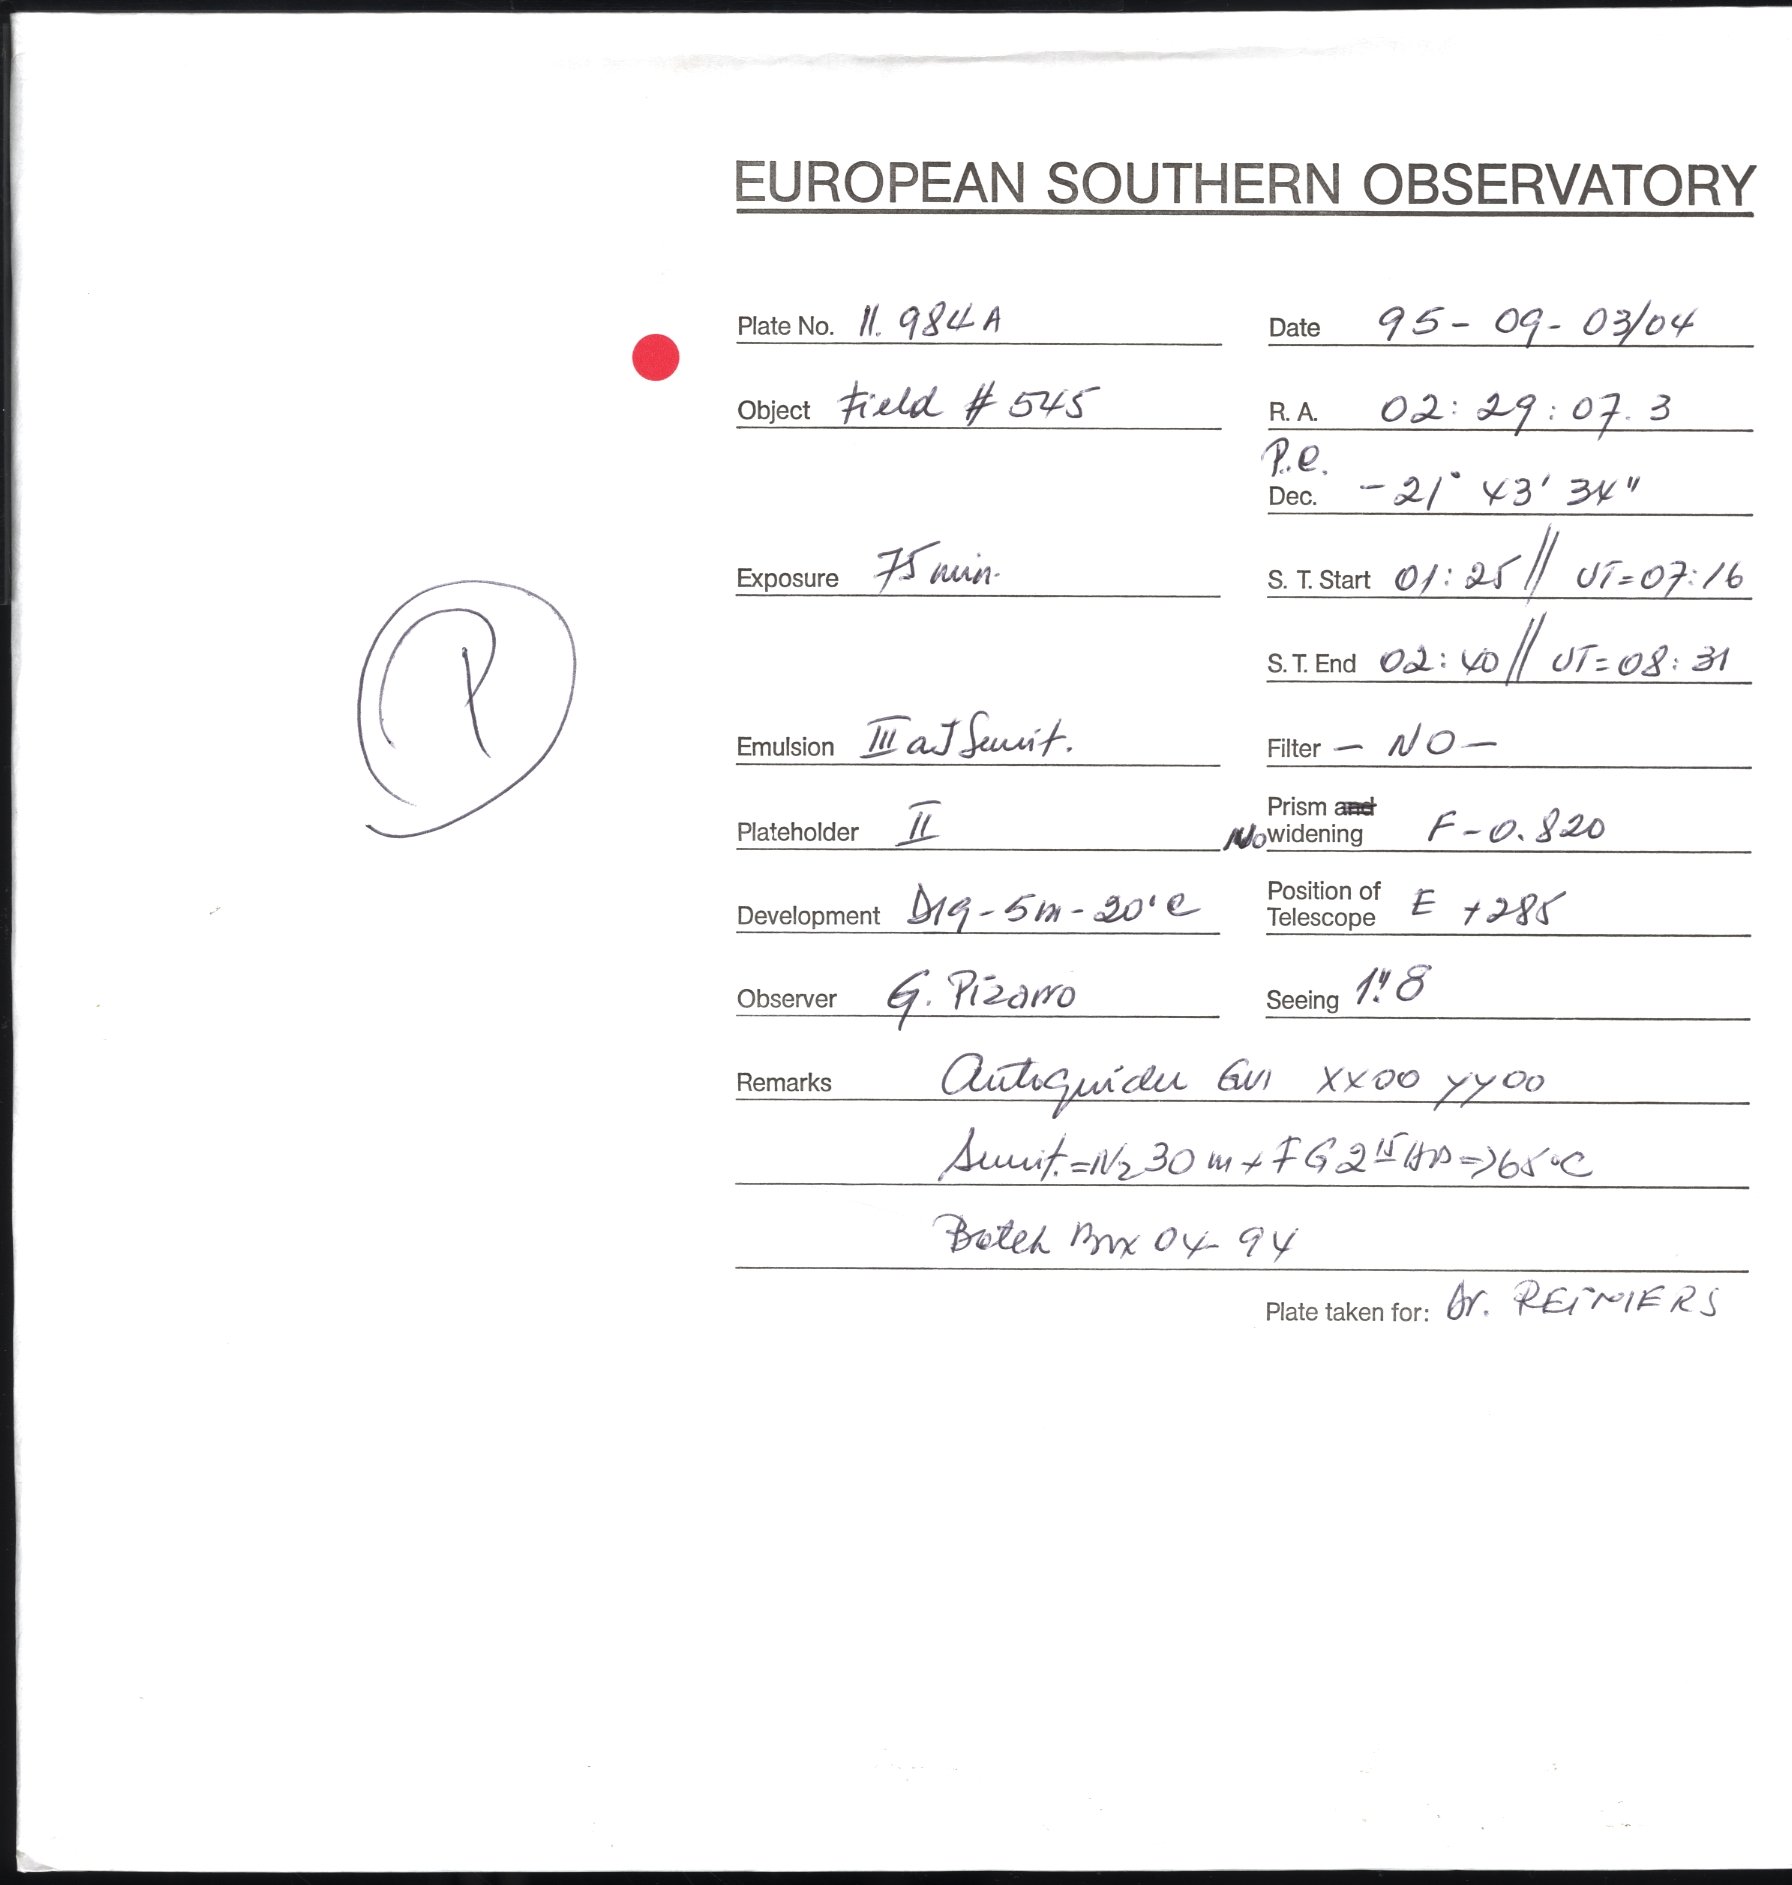 EUROPEAN SOUTHERN OBSERVATORY
Plate No. 11.984A Date 95-09-03/04
Object Field # 545 R. A. 02:29:07.3
P.e.
Dec. -21° 43' 34"
Exposure 75 min. S. T. Start 01:25 // UT=07:16
S. T. End 02:40 // UT=08:31
Emulsion III aJ Sensit. Filter - NO -
Plateholder II No Prism and widening F-0.820
Development D19-5m-20°C Position of Telescope E +285
Observer G. Pizarro Seeing 1".8
Remarks Autoguider XX00 YY00
Sensit.=N2 30 m + FG 2 15 =>65°C
Batch Box 04-94
Plate taken for: Dr. REIMERS
P